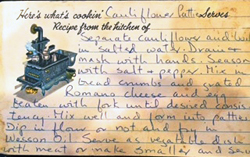 Here's what's cookin' Cauliflower Patties Serves
Recipe from the kitchen of
Separate cauliflower and boil
in salted water. Drain &
mash with hands. Season
with salt & pepper. Mix in
bread crumbs and grated
Romano cheese and egg
beaten with fork until desired consis-
tency. Mix well and form into patties.
Dip in flour or not and fry in
Wesson Oil. Serve as vegetable dish
with meat or make smaller and serve